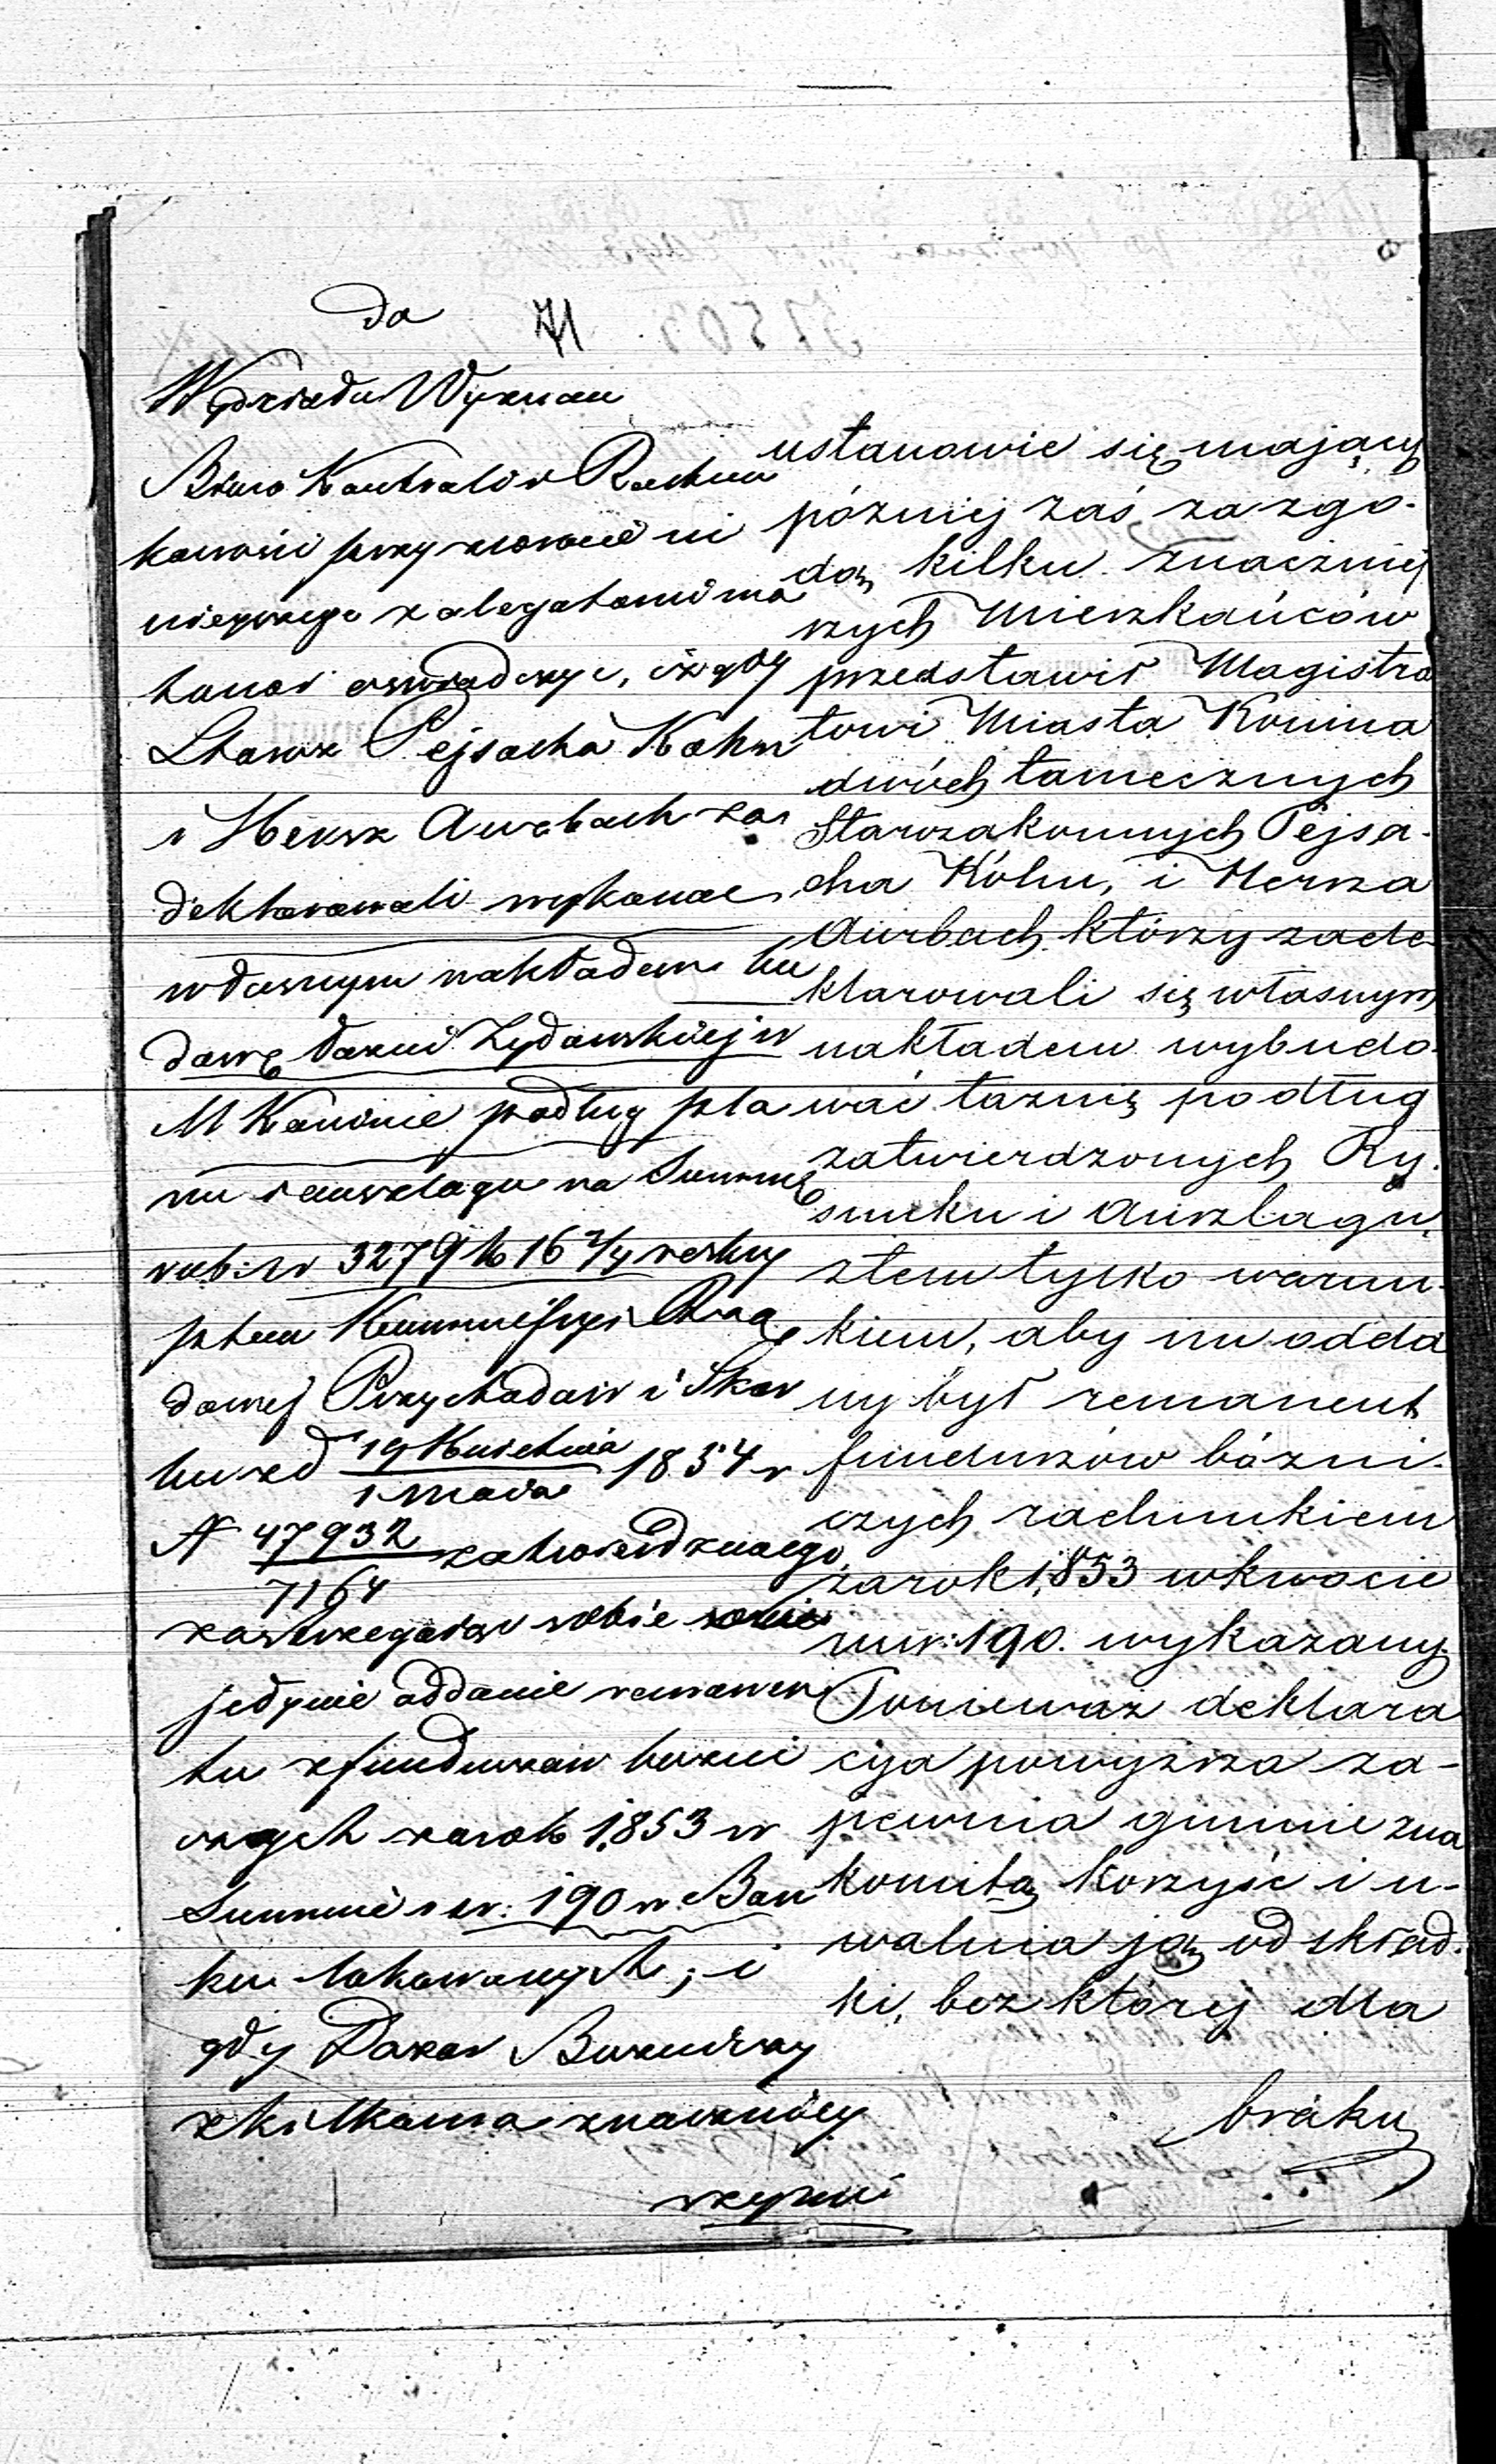 Do 71
Wydziału Wyznań
Biuro Kontroli i Rachun
kowości przy zwrocie ni
niejszego z alegatami ma
honor oświadczyć, iż gdy
Pejsacha Kohn
i Hersz Auerbach za
deklarowali wykonać
własnym nakładem bu
dowę łaźni Żydowskiej w
M Koninie podług pla
nu i anszlagu na Summę
rub: sr 3279 k 16 2/4 resky
ptem Kommissyi Rzą
dowej Przychodów i Skar
bu z d 19 Kwietnia / 1 Maja 1854 r
N 47932 / 7164 zatwierdzonego
zastrzegając sobie
jedynie oddanie remanen
tu z funduszów bożni
czych za rok 1,853 w
Summie rsr: 190 w Ban
ku lokowanych; i
gdy Dozór Bożniczy
z kilkoma znaczniey
szymi
ustanowić się mający
później zaś za zgo-
dą kilku znaczniej
szych Mieszkańców
przedstawił Magistra
towi Miasta Konina
dwóch tamecznych
Starozakonnych Pejsa-
cha Kóhn, i Hersza
Aurbach, którzy zade
klarowali się własnym
nakładem wybudo-
wać łaźnię podług
zatwierdzonych Ry-
sunku i Anszlagu,
z tem tylko warun-
kiem, aby im odda
ny był remanent
funduszów bóżni-
czych rachunkiem
za rok 1,853 w kwocie
rsr: 190. wykazany.
Ponieważ deklara
cija powyższa za-
pewnia gminie zna
komitą korzyść i u-
walnia ją od skład-
ki, bez której dla
braku